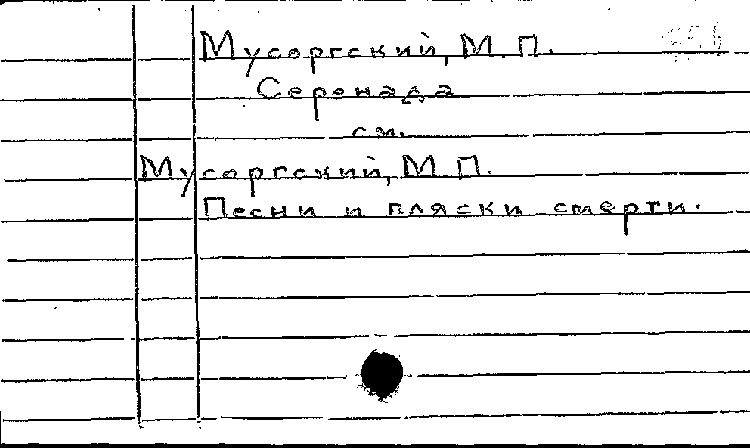 Мусоргский, М. П.
Серенада
см.
Мусоргский, М. П.
Песни и пляски смерти.